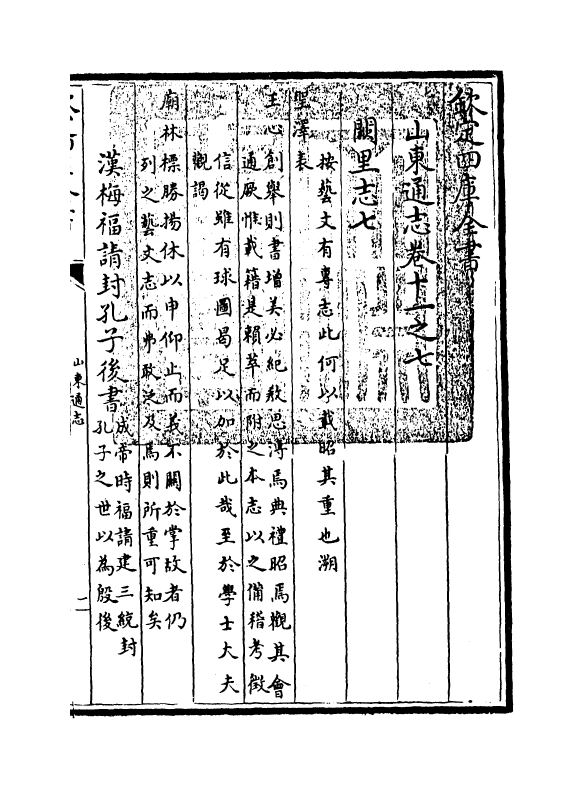 欽定四庫全書
山東通志卷十一之七
闕里志七
按藝文有專志此何以載昭其重也溯
聖澤表
王心創舉則書增美必紀教思溥焉典禮昭焉觀其會
通厥惟載籍是賴萃而附之本志以之備稽考徵
信從雖有球圖曷足以加於此哉至於學士大夫
觀謁
廟林標勝揚休以申仰止而義不關於掌故者仍
列之藝文志而弗敢泛及焉則所重可知矣
漢梅福請封孔子後書成帝時福請建三統封
孔子之世以為殷後
山東通志
一